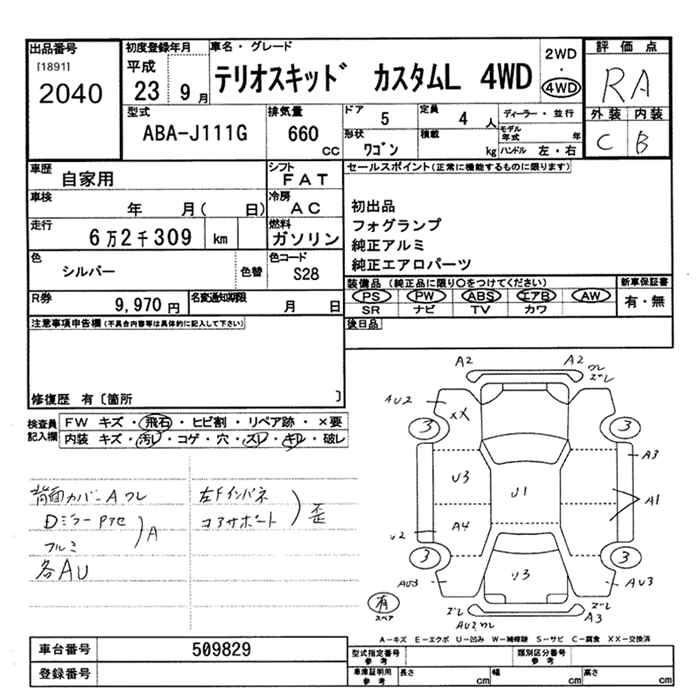 出品番号
[1891]
2040
初度登録年月
平成
23 9月
車名・グレード
テリオスキッド カスタムL 4WD
2WD
・
4WD
評価点
RA
外装 内装
C B
型式
ABA-J111G
排気量
660 cc
ドア 5
定員 4 人
形状 ワゴン
積載 kg
ディーラー・並行
モデル年式 年
ハンドル 左・右
車歴
自家用
シフト
FAT
車検
年 月( 日)
冷房
AC
走行
6万2千309 km
燃料
ガソリン
色
シルバー
色替
色コード
S28
R券
9,970円
名変通知期限
月 日
セールスポイント(正常に機能するものに限ります)
初出品
フォグランプ
純正アルミ
純正エアロパーツ
装備品(純正品に限り〇をつけてください)
PS PW ABS エアB AW
SR ナビ TV カワ
新車保証書
有・無
後日品
注意事項申告欄(不具合内容等は具体的に記入して下さい)
修復歴 有〔箇所 〕
検査員記入欄
FW キズ・飛石・ヒビ割・リペア跡・×要
内装 キズ・汚レ・コゲ・穴・スレ・キレ・破レ
背面カバーA ワレ
Dミラー
アルミ
A
各AU
左Fインパネ
コアサポート
歪
A2
A2
ワレ
ズレ
AU2
XX
3
3
A3
U3
U1
A1
U2
A4
3
3
U3
AU3
AU3
有
スペア
ズレ
AU2 ワレ
ズレ
A3
A-キズ E-エクボ U-凹み W-補修跡 S-サビ C-腐食 XX-交換済
車台番号
509829
登録番号
型式指定番号
参考
類別区分番号
参考
車庫証明用
参考
長さ cm
幅 cm
高さ cm